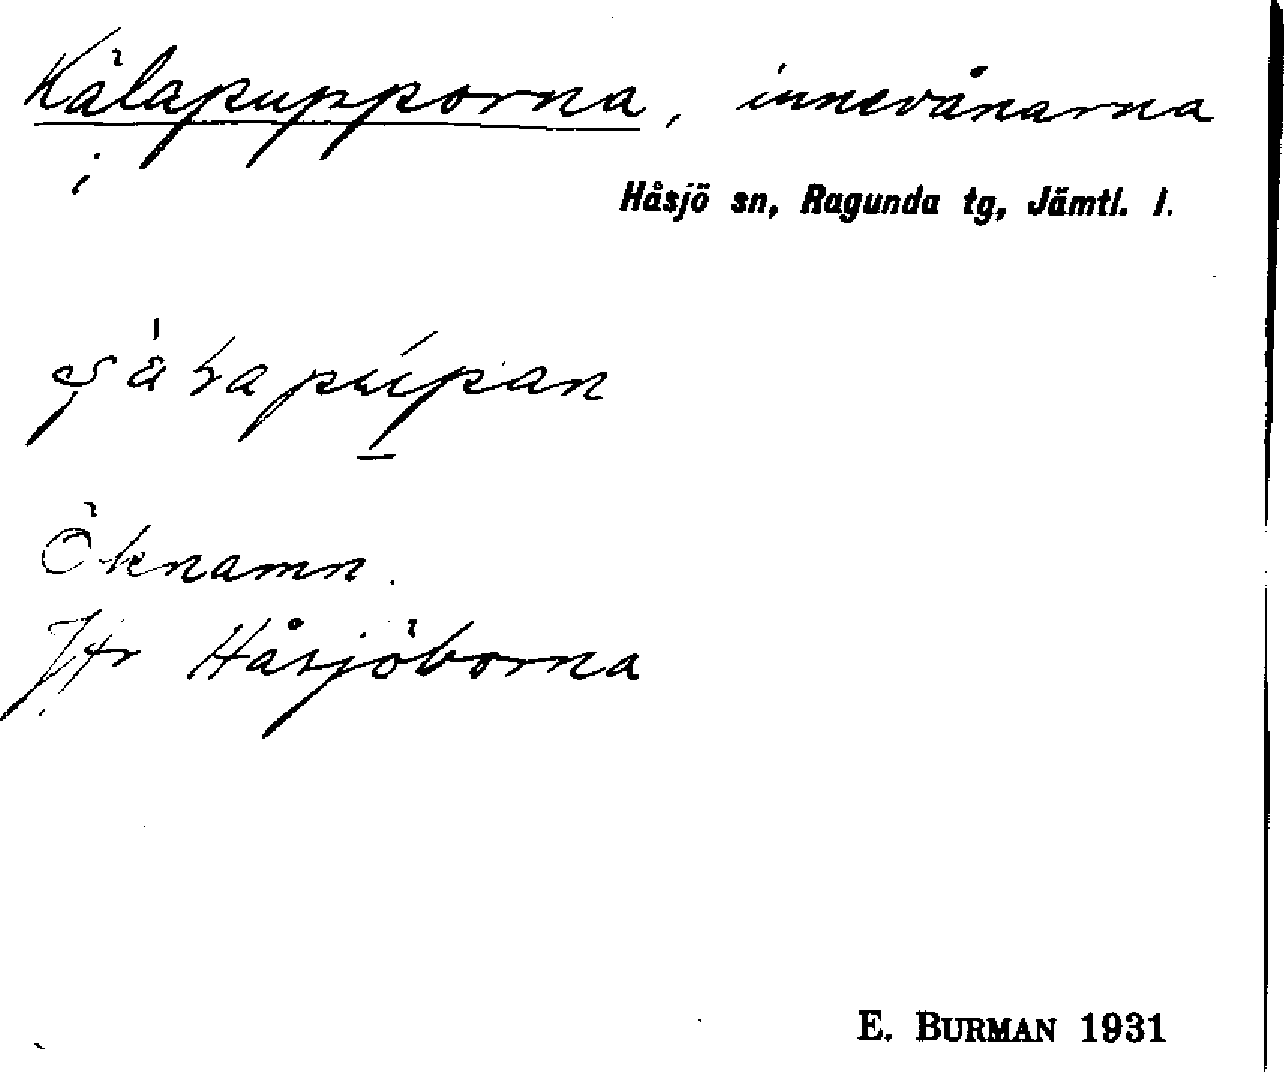 Kälapupporna, innevånarna
i
Håsjö sn, Ragunda tg, Jämtl. l.
Öknamn.
Jfr Håsjöborna
E. BURMAN 1931